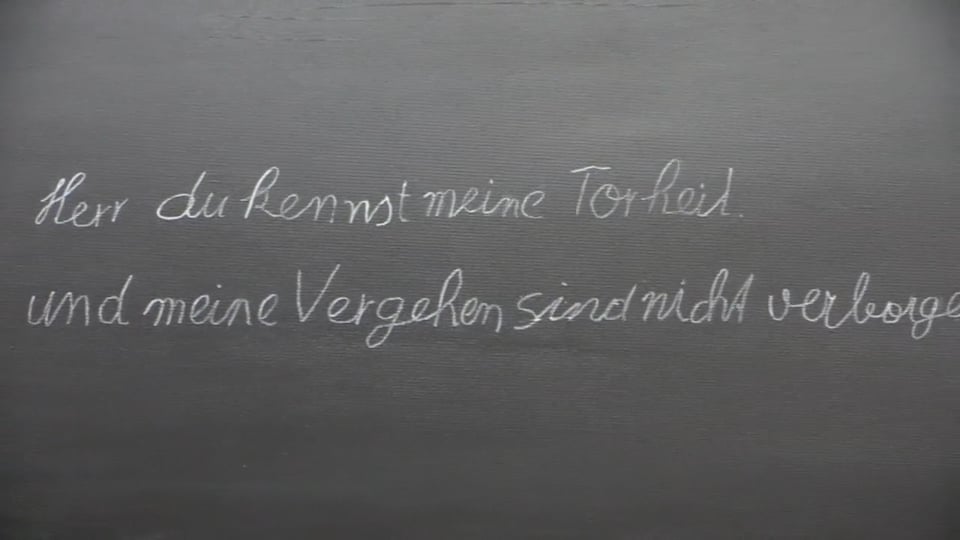 Herr du kennst meine Torheit.
und meine Vergehen sind nicht verborge